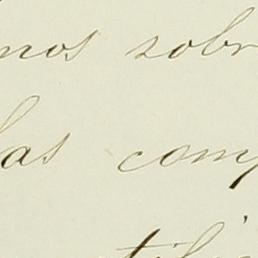 nos sobr
las comp